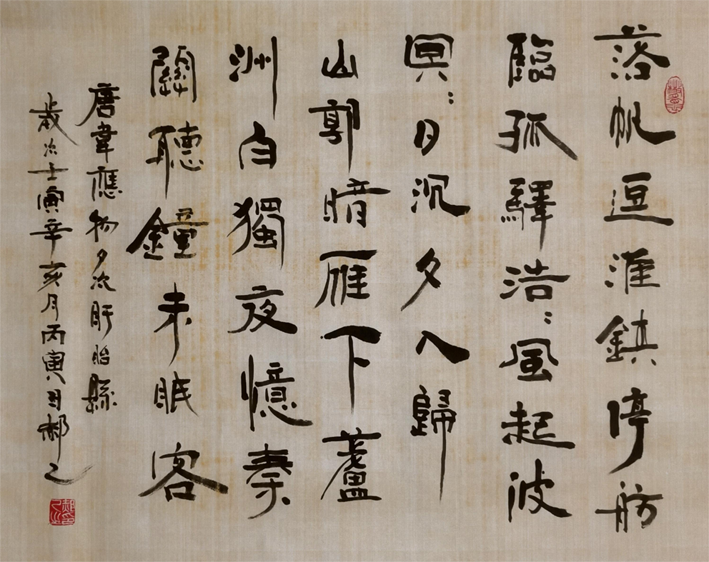 落帆逗淮鎮停舫
臨孤驛浩:風起波
冥:日沉夕人歸
山郭暗雁下蘆
洲白獨夜憶秦
關聽鐘未眠客
唐韋應物夕次盱眙縣
歲次壬寅辛亥月丙寅日郝